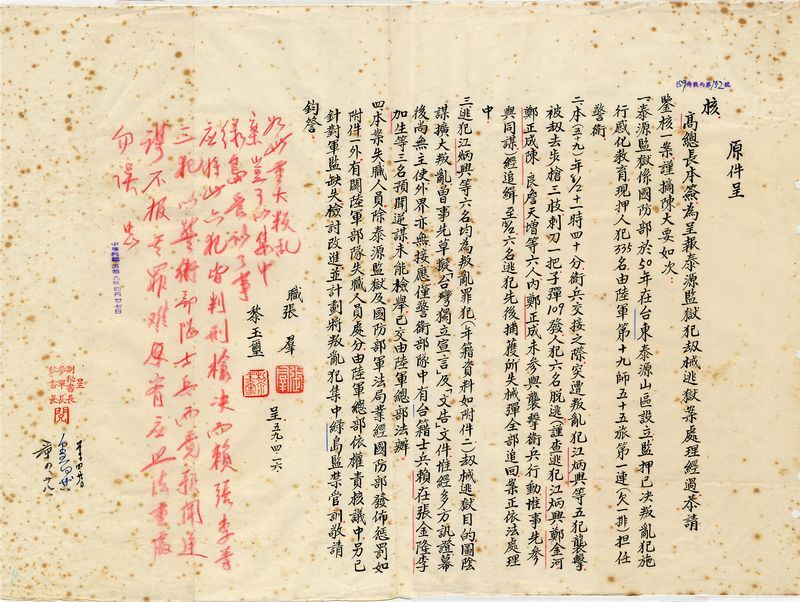 (59)機戰丙第132號
原件呈
核
高總長本簽為呈報泰源監獄犯刼械逃獄案處理經過恭請
鑒核一案謹摘陳大要如次：
一泰源監獄係國防部於50年在台東泰源山區設立監押已決叛亂犯施
行感化教育現押人犯335名由陸軍第十九師五十五旅第一連(欠一排)担任
警衛
二本(五十九)年2/8十一時四十分衛兵交接之際突遭叛亂犯江炳興等五犯襲擊
被刼去步槍三枝刺刀一把子彈109發人犯六名脫逃(謹查逃犯江炳興鄭金河
鄭正成陳良詹天增等六人內鄭正成未參與襲擊衛兵行動惟事先參
與同謀)經追緝至2/18六名逃犯先後捕獲所失械彈全部追回案正依法處理
中
三逃犯江炳興等六名均為叛亂罪犯(年籍資料如附件二)刼械逃獄目的圖陰
謀擴大叛亂曾事先草擬「台灣獨立宣言」及「文告」文件惟經多方訊證幕
後尚無主使外界亦無接應僅警衛部隊中有台籍士兵賴在張金隆李
加生等三名預聞逆謀未能檢舉已交由陸軍總部法辦
四本案失職人員除泰源監獄及國防部軍法局業經國防部發佈懲罰如
附件一外有關陸軍部隊失職人員處分由陸軍總部依權責核議中另已
針對軍監缺失檢討改進並計劃將叛亂犯集中綠島監禁管訓敬請
鈞詧
職張群
黎玉璽
呈五九四一六
如此重大叛亂
案豈可以集中
綠島管訓了事
應將此六犯皆判刑槍決而賴張李等
三犯以警衛部隊士兵而竟預聞逆
謀不報其罪難原者應照法重處
勿誤
中華民國五拾九年四月廿七日
呈
副秘書長
參軍長
秘書長
閱